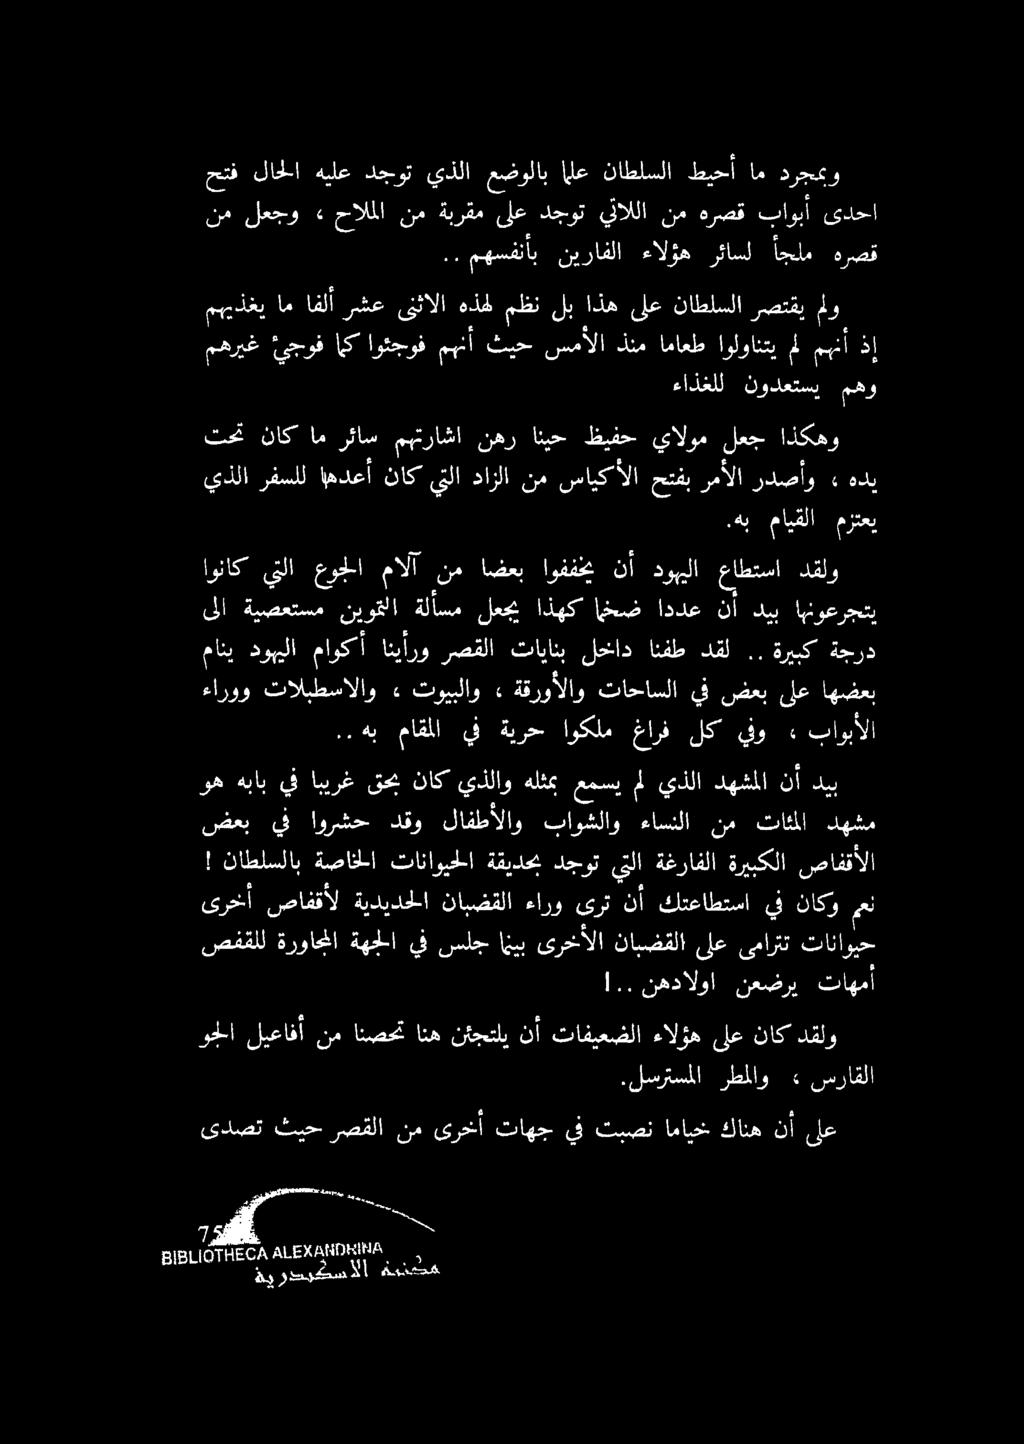 وبمجرد ما أحيط السلطان علما بالوضع الذي توجد عليه الحال فتح
احدى أبواب قصره من اللاتي توجد على مقربة من الملاح ، وجعل من
قصره ملجأ لسائر هؤلاء الفارين بأنفسهم ..
ولم يقتصر السلطان على هذا بل نظم لهذه الاثنى عشر ألفا ما يغذيهم
إذ أنهم لم يتناولوا طعاما منذ الأمس حيث أنهم فوجئوا كما فوجيء غيرهم
وهم يستعدون للغذاء
وهكذا جعل مولاي حفيظ حينا رهن اشارتهم سائر ما كان تحت
يده ، وأصدر الأمر بفتح الأكياس من الزاد التي كان أعدها للسفر الذي
يعتزم القيام به.
ولقد استطاع اليهود أن يخففوا بعضا من آلام الجوع التي كانوا
يتجرعونها بيد أن عددا ضخما كهذا يجعل مسألة التموين مستعصية الى
درجة كبيرة .. لقد طفنا داخل بنايات القصر ورأينا أكوام اليهود ينام
بعضها على بعض في الساحات والأورقة ، والبيوت ، والاسطبلات ووراء
الأبواب ، وفي كل فراغ ملكوا حرية في المقام به ..
بيد أن المشهد الذي لم يسمع بمثله والذي كان بحق غريبا في بابه هو
مشهد المئات من النساء والشواب والأطفال وقد حشروا في بعض
الأقفاص الكبيرة الفارغة التي توجد بحديقة الحيوانات الخاصة بالسلطان !
نعم وكان في استطاعتك أن ترى وراء القضبان الحديدية لأقفاص أخرى
حيوانات تترامى على القضبان الأخرى بينما جلس في الجهة المجاورة للقفص
أمهات يرضعن اولادهن ..!
ولقد كان على هؤلاء الضعيفات أن يلتجئن هنا تحصنا من أفاعيل الجو
القارس ، والمطر المسترسل.
على أن هناك خياما نصبت في جهات أخرى من القصر حيث تصدى
75
BIBLIOTHECA ALEXANDRINA
مكتبة الاسكندرية